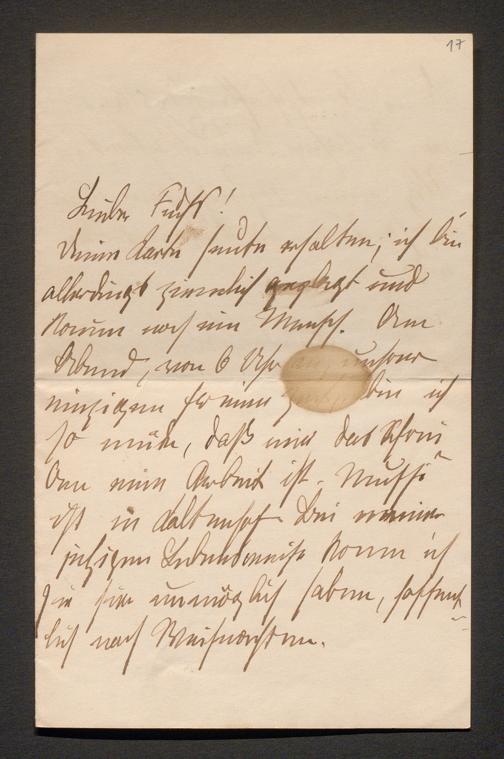 17
Lieber Fuchs!
Deine Karte heute erhalten; ich bin
allerdings ziemlich geplagt und
kaum noch ein Mensch. Am
Abend, von 6 Uhr an, unserer
einzigen freien, bin ich
so müde, daß mir das Schrei
ben eine Arbeit ist. Mussi
ist in Kaltenhof. Bei meiner
jetzigen Lebensweise kann ich
sie hier unmöglich haben, hoffent
lich nach Weihnachten.